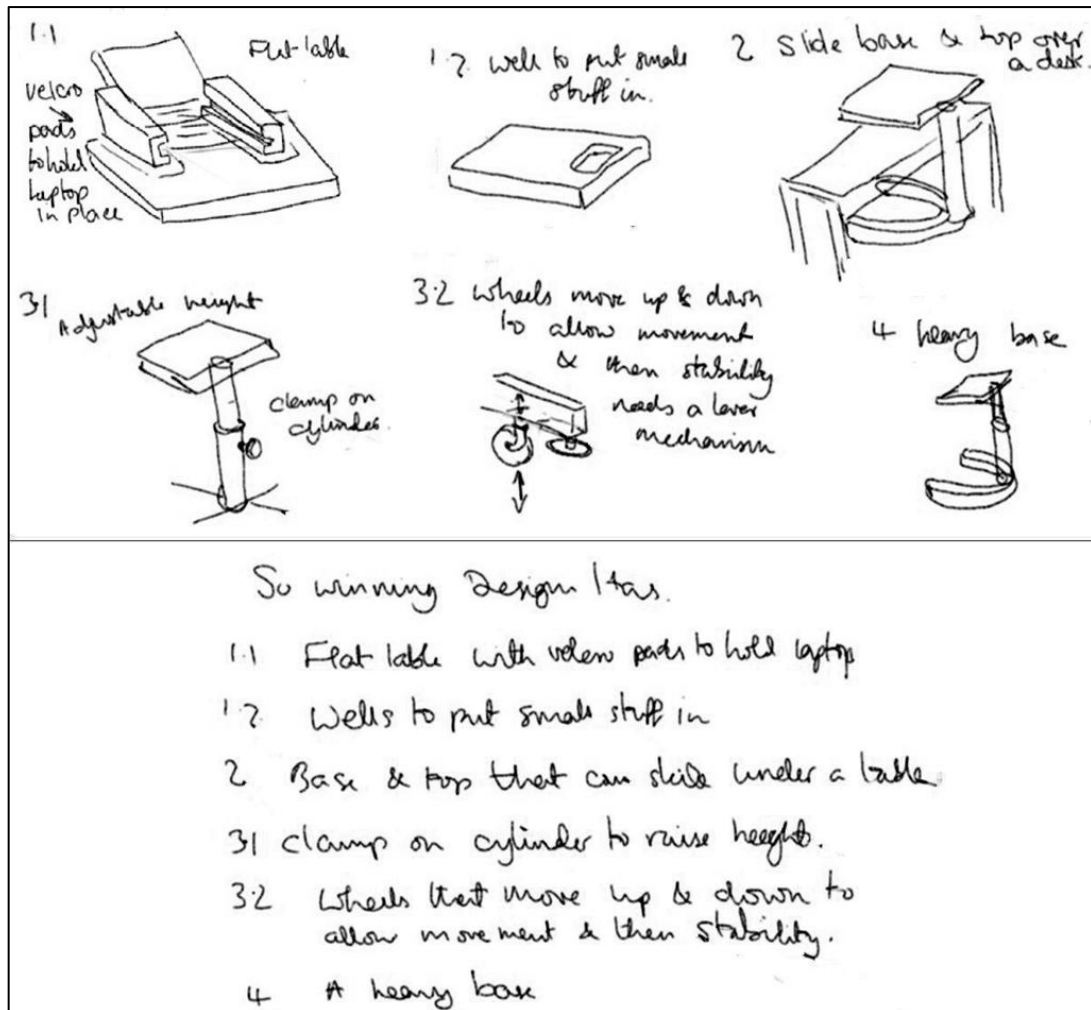 1.1
Flat table
velcro
pads
to hold
laptop
in place
1.2 well to put small
stuff in.
2 Slide base & top over
a desk.
3.1
Adjustable height
clamp on
cylinder.
3.2 wheels move up & down
to allow movement
& then stability
needs a lever
mechanism
4 heavy base
So winning Design Has.
1.1 Flat table with velcro pads to hold laptop
1.2 Wells to put small stuff in
2 Base & top that can slide under a table
3.1 clamp on cylinder to raise height.
3.2 wheels that move up & down to
allow movement & then stability.
4 A heavy base